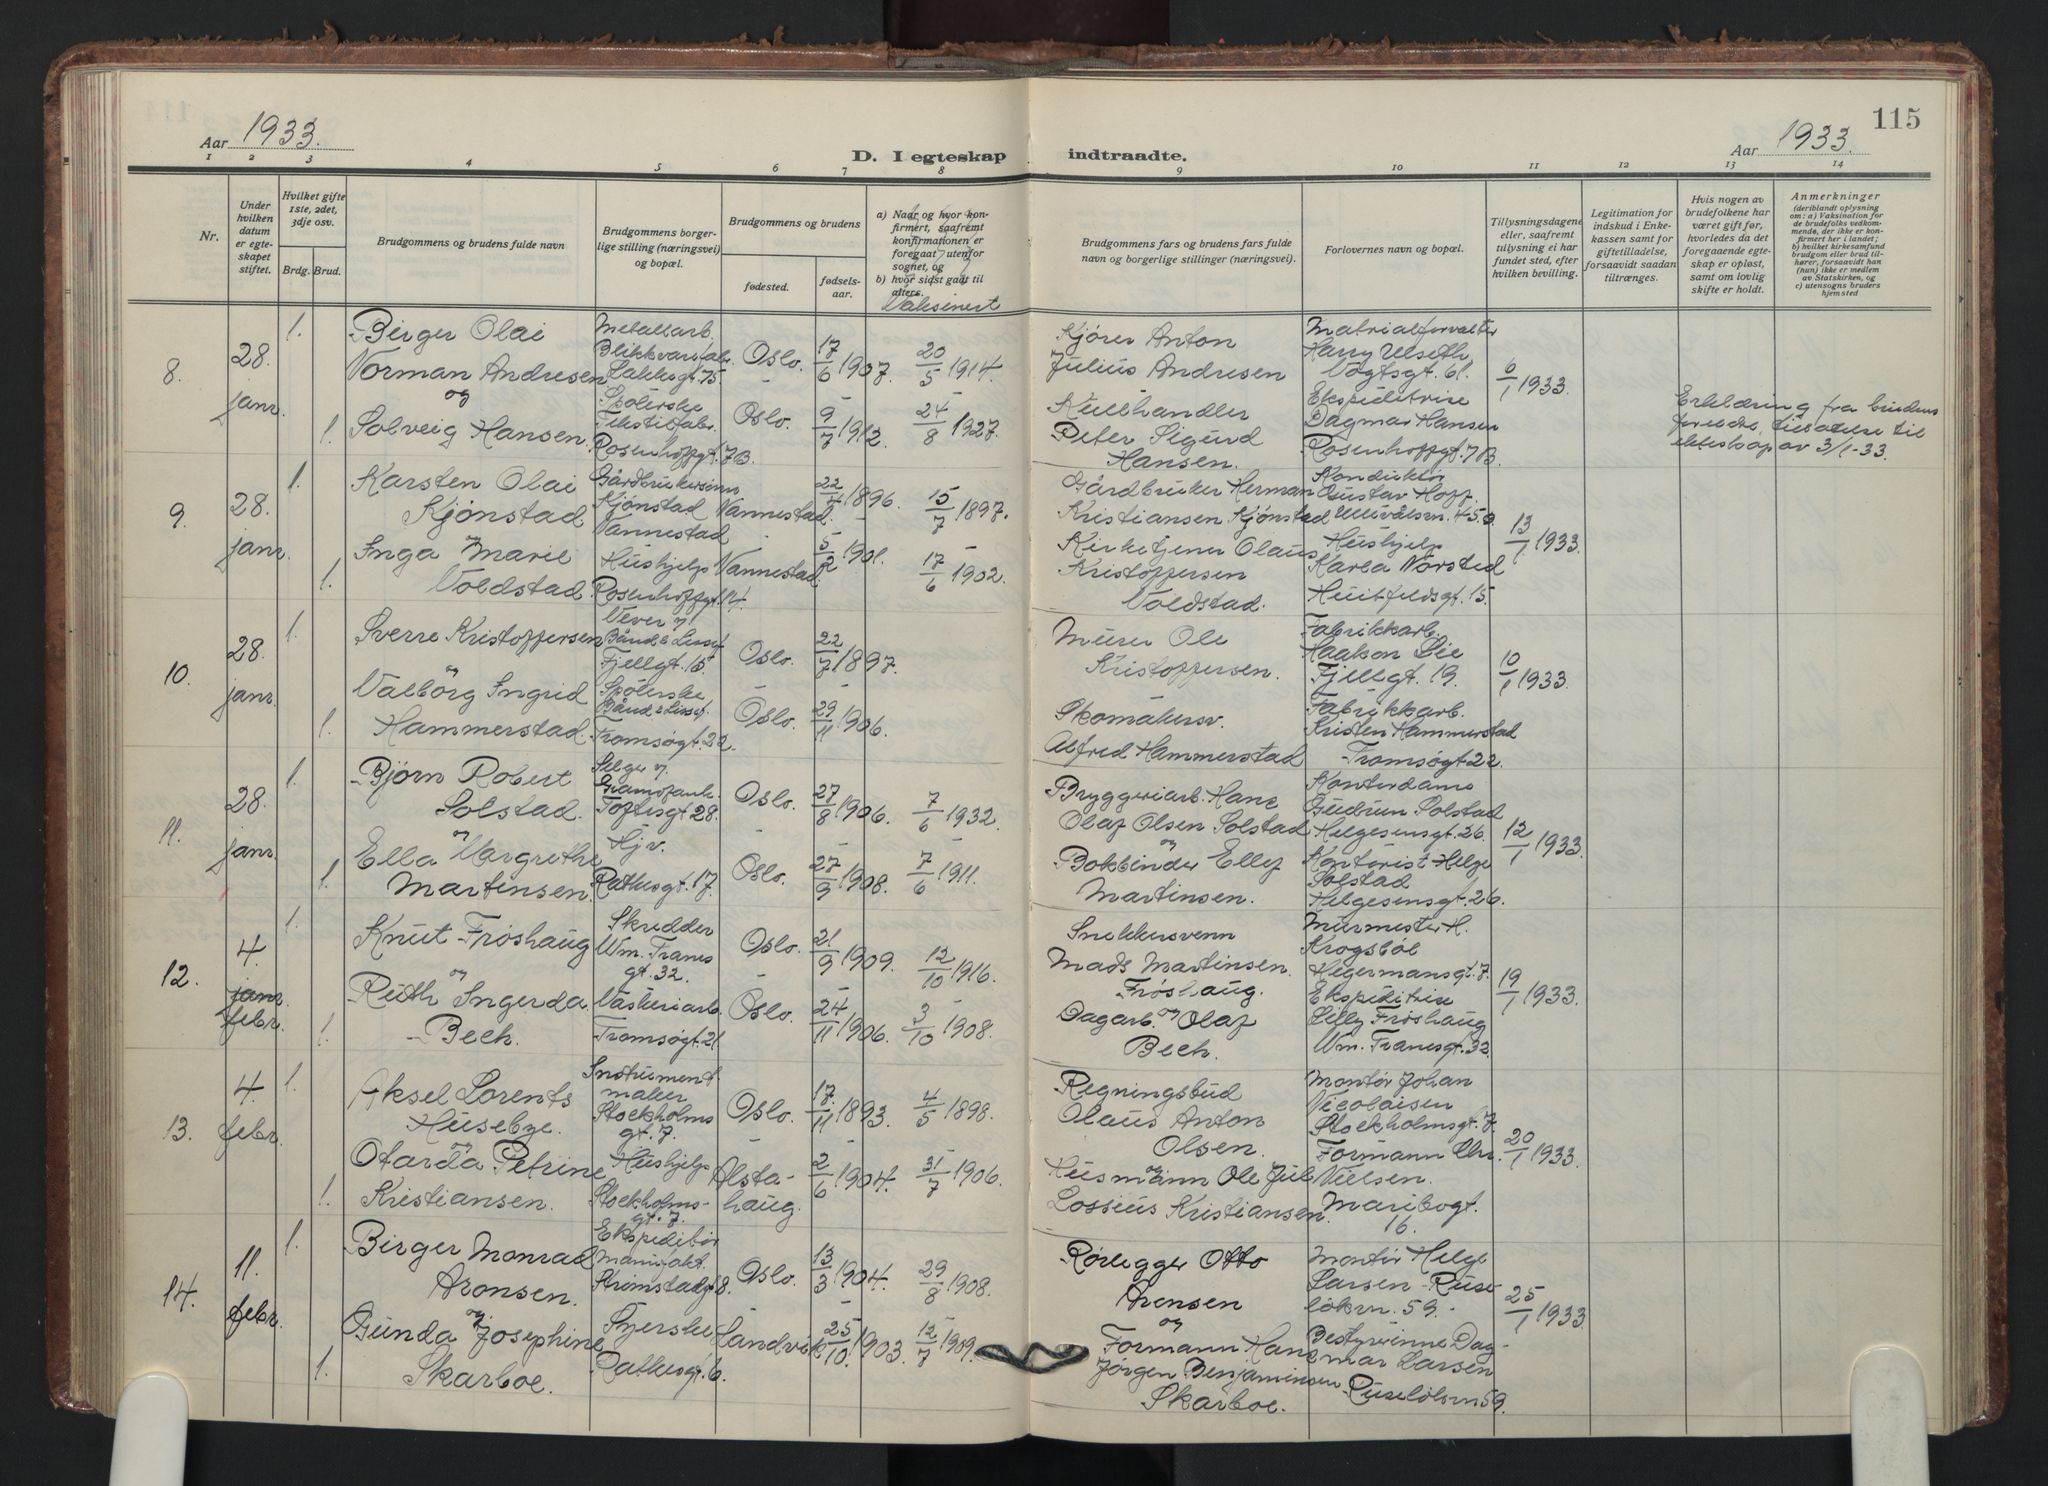 115
Aar 1933.
D. I egteskap indtraadte.
Aar 1933.
1 2 3 4 5 6 7 8 9 10 11 12 13 14
Nr.
Under hvilken datum er egteskapet stiftet.
Hvilket gifte 1ste, 2det, 3dje osv.
Brdg. Brud.
Brudgommens og brudens fulde navn
Brudgommens borgerlige stilling (næringsvei) og bopæl.
Brudgommens og brudens
fødested.
fødselsaar.
a) Naar og hvor konfirmert, saafremt konfirmationen er foregaat utenfor sognet, og
b) hvor sidst gaat til alters.
Vaksinert
Brudgommens fars og brudens fars fulde navn og borgerlige stillinger (næringsvei).
Forlovernes navn og bopæl.
Tillysningsdagene eller, saafremt tillysning ei har fundet sted, efter hvilken bevilling.
Legitimation for indskud i Enkekassen samt for giftetilladelse, forsaavidt saadan tiltrænges.
Hvis nogen av brudefolkene har været gift før, hvorledes da det foregaaende egteskap er opløst, samt om lovlig skifte er holdt.
Anmerkninger
(deriblandt oplysning om: a) Vaksination for de brudefolks vedkommende, der ikke er konfirmert her i landet; b) hvilket kirkesamfund brudgom eller brud tilhører, forsaavidt han (hun) ikke er medlem av Statskirken, og c) utensogns bruders hjemsted
8. 28. janr. 1. Birger Olai
Norman Andresen
og
1. Solveig Hansen.
Metallarb.
Blikkvarefabr.
Lakkegt. 75
Spolerske
Tekstilfabr.
Rosenhoffgt. 7B.
Oslo. 17/6 1907. 20/5 1914.
Oslo. 9/7 1912. 24/8 1927.
Kjører Anton
Julius Andresen
Kullhandler
Peter Sigurd
Hansen.
Matrialforvalter
Harry Ulseth,
Vogtsgt. 61.
Ekspeditrise
Dagmar Hansen
Rosenhoffgt. 7B.
6/1 1933.
Erklæring fra brudens
foreldre, tillatelse til
ekteskap av 3/1-33.
9. 28. janr. 1. Karsten Olai
Kjønstad
1. Inga Marie
Voldstad
Gårdbrukersønn
Kjønstad
Nannestad
Hushjelp
Rosenhoffgt. 14.
Nannestad. 22/4 1896. 15/7 1897.
Nannestad 5/2 1901. 17/6 1902.
Gårdbruker Herman
Kristiansen Kjønstad
Kirketjener Olaus
Kristoffersen
Voldstad.
Konduktør
Gustav Hoff.
Ullevålsvn. 45.
Hushjelp
Karla Norstad
Huitfeldsgt. 15.
13/1 1933.
10. 28. janr. 1. Sverre Kristoffersen
og
Valborg Ingrid
1. Hammerstad.
Vever v/
Bånd & Lissef.
Fjellgt. 15.
Spolerske
Bånd & Lissef.
Tromsøgt. 22.
Oslo. 22/7 1897.
Oslo. 29/11 1906.
Murer Ole
Kristoffersen.
Skomakersv.
Alfred Hammerstad
Fabrikkarb.
Haakon Lie
Fjellgt. 19.
Fabrikkarb.
Kristen Hammerstad
Tromsøgt 22.
10/1 1933.
11. 28. janr. 1. Bjørn Robert
Solstad.
og
Ella Margrethe
1. Martinsen.
Selger v.
Toftesgt 28.
Hjv.
Rathkesgt. 17.
Oslo. 27/8 1906. 7/6 1932.
Oslo. 27/9 1908. 7/6 1911.
Bryggeriarb. Hans
Olaf Olsen Solstad
og
Bokbinder Ellef
Martinsen.
Kontordame
Gudrun Solstad
Helgesensgt. 26.
Kontorist Helge
Solstad
Helgesensgt. 26.
12/1 1933.
12. 4. janr. febr. 1. Knut Frøshaug
og
Ruth Ingerda
1. Bech.
Skredder
Wm. Tranes
gt. 32.
Vaskeriarb.
Tromsøgt. 21
Oslo. 21/9 1909. 12/10 1916.
Oslo. 24/11 1906. 3/10 1908.
Snekkersvenn
Mads Martinsen.
Frøshaug.
og
Dagarb. Olaf
Bech.
Murmester H.
Krogsbøl
Hegermansgt. 7.
Ekspeditrise
Lilly Frøshaug
Wm. Tranesgt. 32.
19/1 1933.
13. 4. febr. 1. Aksel Lorents
Husebye.
og
Otarda Petrine
1. Kristiansen.
Instrument
maker
Stockholms
gt. 7.
Hushjelp
Stockholms-
gt. 7.
Oslo. 17/11 1893. 4/5 1898.
Alsta-
haug. 2/6 1904. 31/7 1906.
Regningsbud
Olaus Anton
Olsen.
og
Husmann Ole Jul
Lossius Kristiansen.
Montør Johan
Nicolaisen
Stockholmsgt. 7.
Formann Chr.
Nielsen.
Maribogt.
16.
20/1 1933.
14. 11. febr. 1. Birger Monrad
Aronsen.
og
Gunda Josephine
1. Skarboe.
Ekspeditør
manufakt.
Strømstadgt 8.
Syerske
Rathkesgt. 6.
Oslo. 13/3 1904. 29/8 1908.
Sandvik 25/10. 1903. 12/7 1909.
Rørlegger Otto
Aronsen
og
Formann Hans
Jørgen Benjaminsen
Skarboe.
Montør Helge
Larsen Ruse-
løkvn. 59.
Bestyrinne Dag-
mar Larsen
Ruseløkvn 59.
25/1 1933.